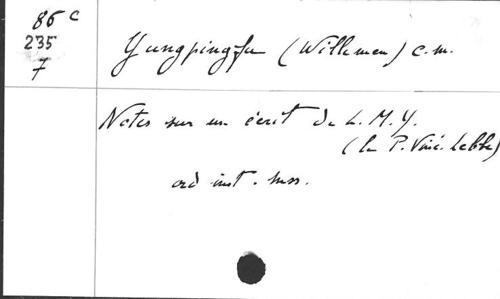 86 c
235
7
Yungpingfu (Willemen) c.m.
Notes sur un écrit de L.M.Y.
(le P. Vinc. Lebbe)
ad inst. mss.